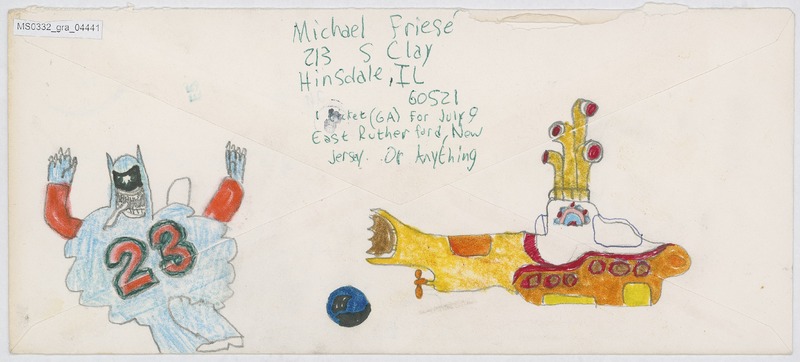 MS0332_gra_04441
Michael Friesé
213 S Clay
Hinsdale, IL
60521
1 Ticket (GA) For July 9
East Rutherford, New
Jersey. Or Anything
23